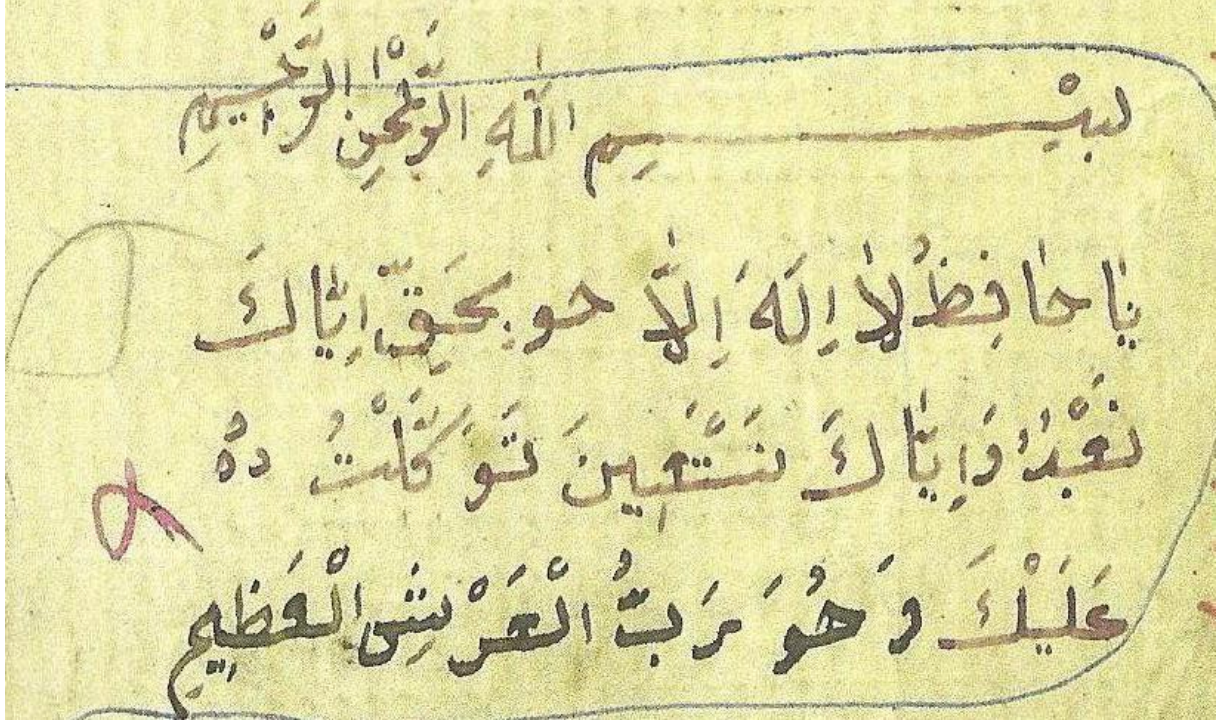 بِسْــــــمِ اللّٰهِ الرَّحْمٰنِ الرَّحِيمِ
يَا حَافِظُ لَا اِلَهَ اِلَّا حو بِحَقِّ اِيَّاكَ
نَعْبُدُ وَاِيَّاكَ نَسْتَعِينَ تَوَكَّلْتُ دهُ
عَلَيْكَ وَ حُوَ رَبُّ الْعَرْشِ الْعَظِيمِ